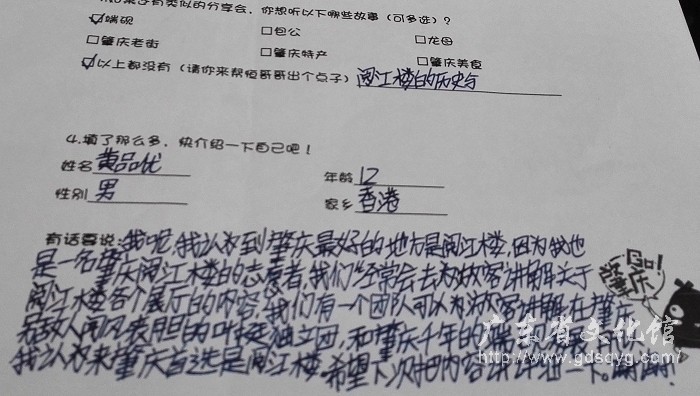 如果今后有类似的分享会，你想听以下哪些故事（可多选）？
☑端砚 □包公 □龙母
□肇庆老街 □肇庆特产 □肇庆美食
☑以上都没有（请你来帮恒哥哥出个点子）阅江楼的历史与
4.填了那么多，快介绍一下自己吧！
姓名 黄品优 年龄 12
性别 男 家乡 香港
有话要说：我呢，我认为到肇庆最好的地方是阅江楼，因为我也
是一名肇庆阅江楼的志愿者，我们经常会去为游客讲解关于
阅江楼各个展厅的内容，我们有一个团队可以为游客讲解在肇庆
叶挺独立团，和肇庆千年的
我认为来肇庆首选是阅江楼，希望下次把内容讲一下。谢谢！
Go!
肇庆
广东省文化馆
www.gdsqyg.com